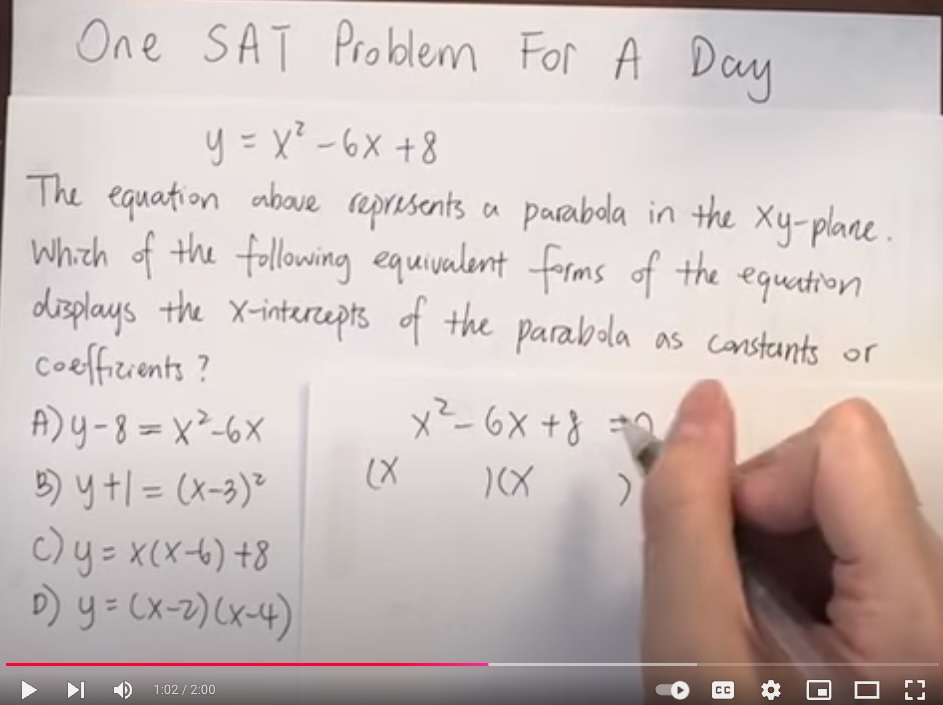 One SAT Problem For A Day
y = x² - 6x + 8
The equation above represents a parabola in the xy-plane.
Which of the following equivalent forms of the equation
displays the x-intercepts of the parabola as constants or
coefficients?
A) y-8 = x²-6x
B) y+1 = (x-3)²
C) y = x(x-6) +8
D) y = (x-2)(x-4)
x² - 6x + 8 = 0
(x )(x )
1:02 / 2:00
CC